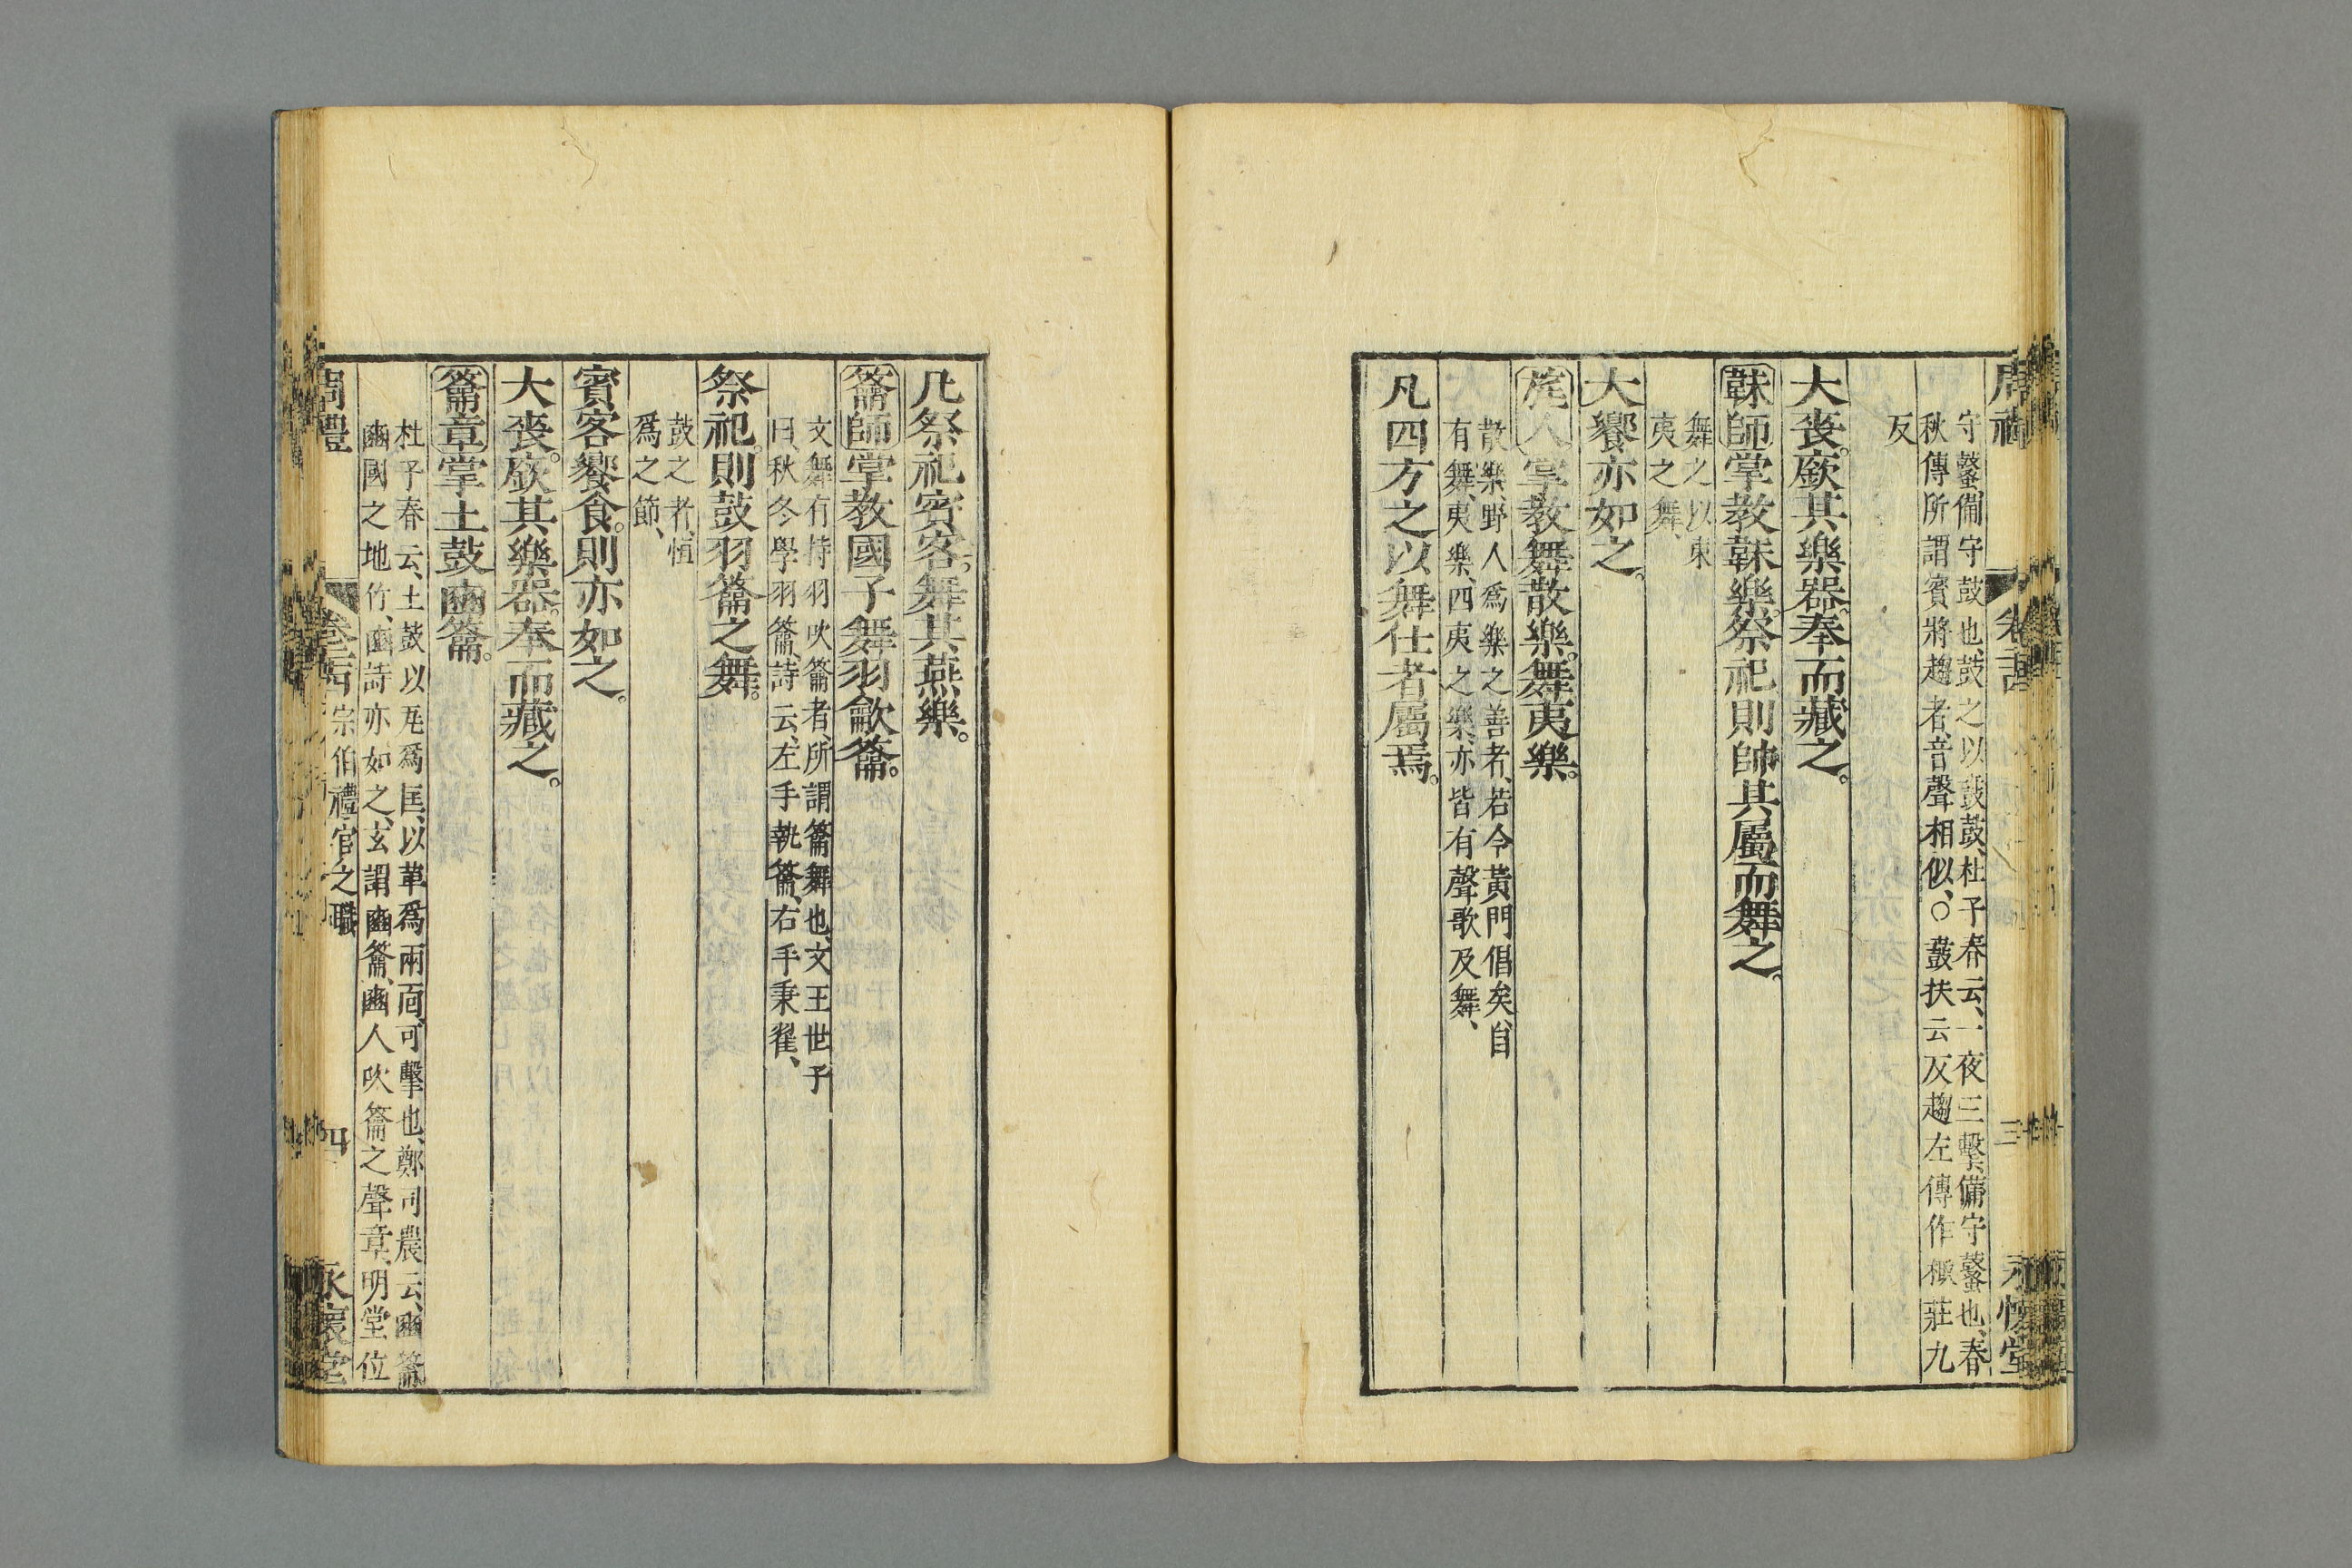 守鼜備守鼓也鼓之以鼖鼓、杜子春云、一夜三擊、備守鼜也、春
秋傳所謂賓將趨者、音聲相似、○鼖扶云反趨左傳作椒莊九
反
大喪。廞其樂器。奉而藏之。
韎師掌教韎樂。祭祀則帥其屬而舞之。
舞之以東
夷之舞、
大饗亦如之。
旄人掌教舞散樂。舞夷樂。
散樂、野人爲樂之善者、若今黃門倡矣、自
有舞、夷樂、四夷之樂、亦皆有聲歌及舞、
凡四方之以舞仕者屬焉。
三
永懷堂
凡祭祀賓客。舞其燕樂。
籥師掌教國子舞羽龡籥。
文舞有持羽吹籥者、所謂籥舞也、文王世子
曰秋冬學羽籥、詩云、左手執籥、右手秉翟、
祭祀。則鼓羽籥之舞。
鼓之者、恒
爲之節、
賓客饗食。則亦如之。
大喪。廞其樂器。奉而藏之。
籥章掌土鼓豳籥。
杜子春云、土鼓以瓦爲匡、以革爲兩面、可擊也、鄭司農云、豳籥
豳國之地竹、豳詩亦如之、玄謂豳籥、豳人吹籥之聲章、明堂位
周禮
卷二十四 宗伯禮官之職
四
永懷堂